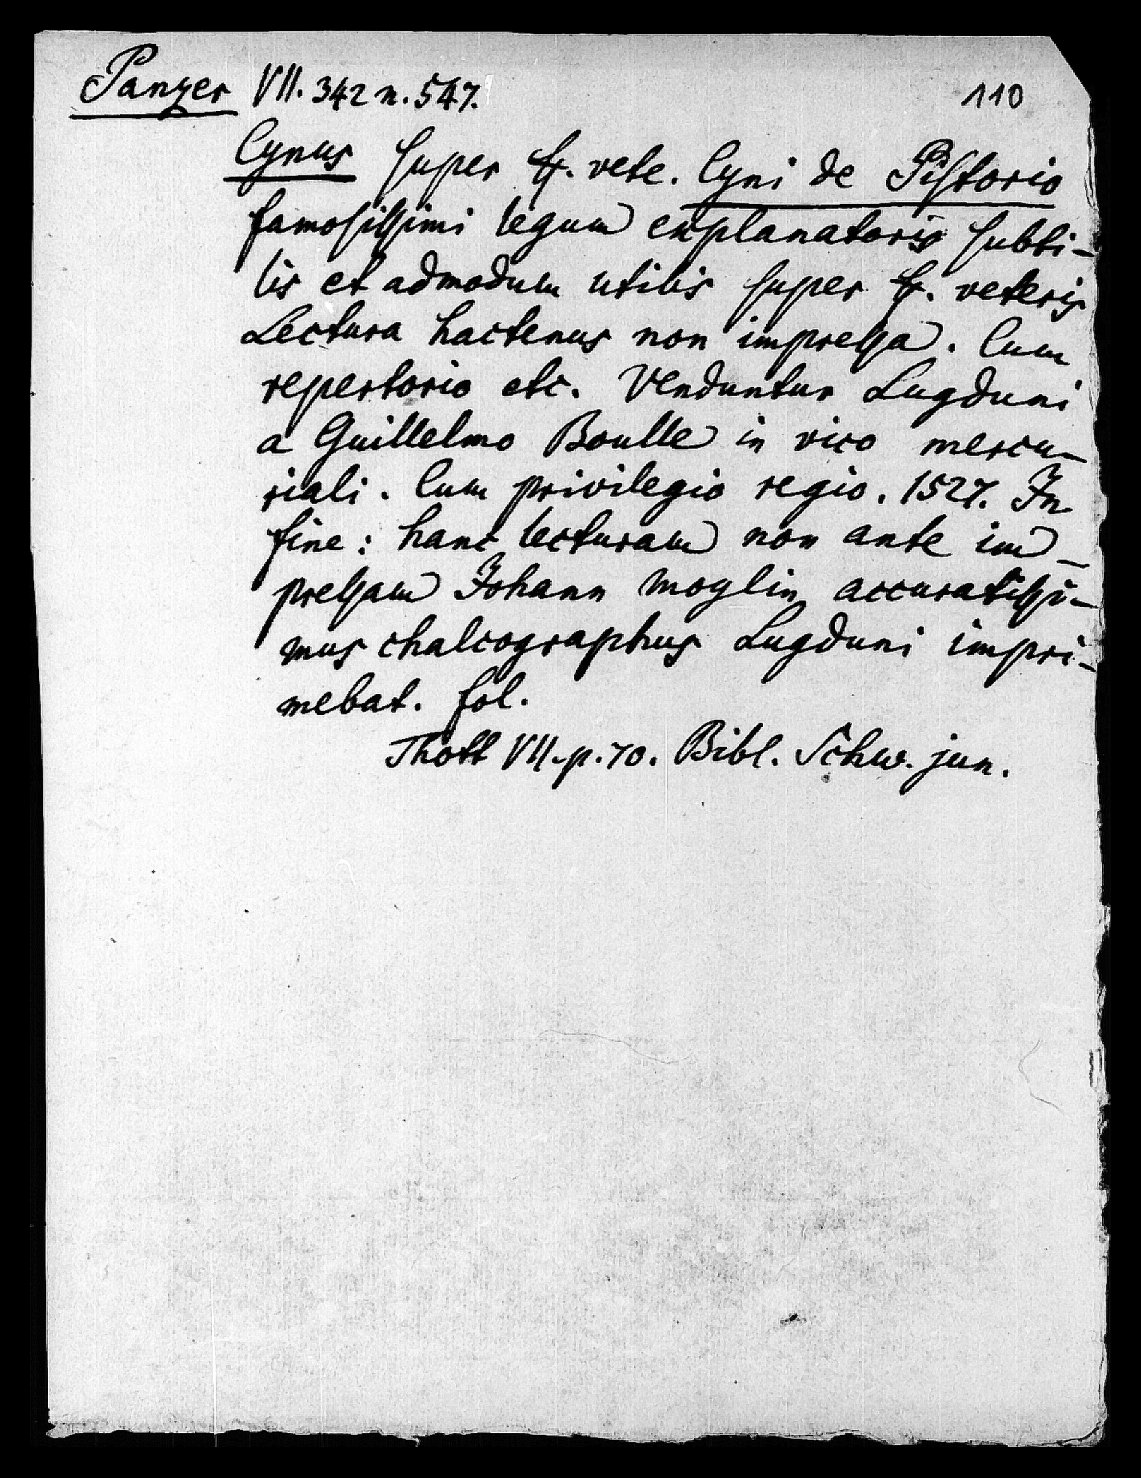 Panzer VII. 342 n. 547. 110
Cynus super ff. vete. Cyni de Pistorio
famosissimi legum explanatoris subti-
lis et admodum utilis super ff. veteris
Lectura hactenus non impressa. Cum
repertorio etc. Venduntur Lugduni
a Guillelmo Boulle in vico mercu-
riali. Cum privilegio regio. 1527. In
fine: hanc lecturam non ante im-
pressam Johann Moylin accuratissi-
mus chalcographus Lugduni impri-
mebat. fol.
Thott VII. p. 70. Bibl. Schw. jun.